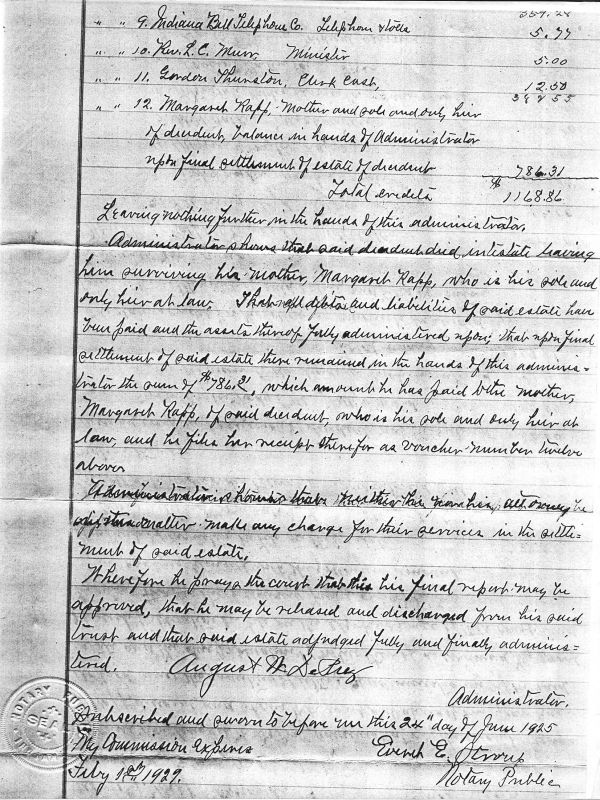 359.28
" " 9. Indiana Bell Telephone Co. Telephone & tolls 5.77
" " 10. Rev. L. C. Murr, Minister 5.00
" " 11. Gordon Thurston, Clerk Cost, 12.50
382 55
" " 12. Margaret Rapp, Mother and sole and only hier
of decedent, balance in hands of Administrator
upon final settlement of estate of decedent 786.31
Total credits $1168.86
Leaving nothing further in the hands of this administrator.
Administrator shows that said decedent died intestate leaving
him surviving his mother, Margaret Rapp, who is his sole and
only hier at law. That all debts and liabilities of said estate have
been paid and the assets thereof fully administered upon; that upon final
settlement of said estate there remained in the hands of this adminis=
trator the sum of $786.31, which amount he has paid to the mother,
Margaret Rapp, of said decedent, who is his sole and only hier at
law, and he files her receipt therefor as voucher number twelve
above.
Administrator shows that neither he, nor his attorney
in this matter make any charge for their services in the settle=
ment of said estate.
Wherefore he prays the court that this his final report may be
approved, that he may be released and discharged from his said
trust and that said estate adjudged fully and finally adminis=
tered. August W.
Administrator.
Subscribed and sworn to before me this 24" day of June 1925
My Commission Expires Everett E. Stroup
Feby 1929. Notary Public
NOTARY PUBLIC
SEAL